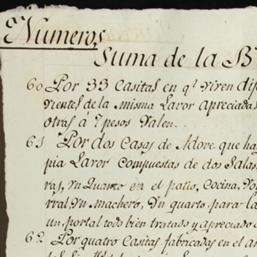 Numeros
Suma de la B
60 Por 33 Casitas en q.e viven dif
vientes de la misma Lavor apreciadas
otras á 7 pesos Valen..
61 Por dos Casas de Adove que ha
pia Lavor compuestas de dos Salas
ras, un Quarto en el patio, Cocina, Por
rral, un Machero, un quarto para la
un portal todo bien tratado y apreciado
62 Por quatro Casitas fabricadas en el an